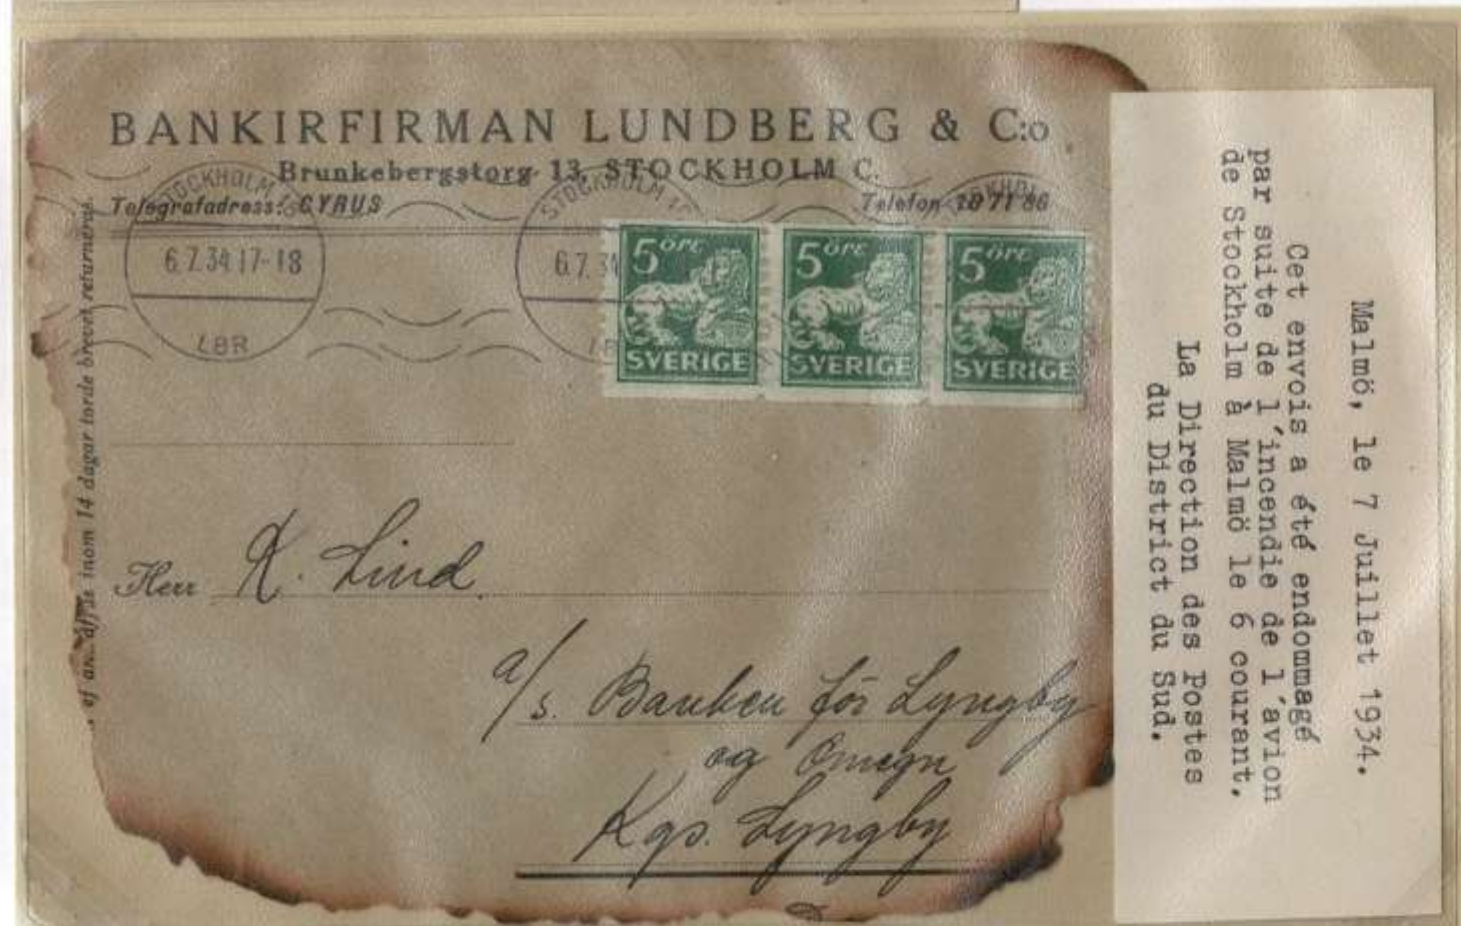 BANKIRFIRMAN LUNDBERG & C:o
Brunkebergstorg 13, STOCKHOLM C.
Telegrafadress: CYRUS
Telefon 10 71 86
STOCKHOLM
6.7.34.17-18
LBR
STOCKHOLM
6.7.34
5 öre
SVERIGE
5 öre
SVERIGE
5 öre
SVERIGE
inom 14 dagar torde brevet returneras.
Herr K. Lind.
a/s. Banken for Lyngby
og Omegn
Kgs. Lyngby
Malmö, le 7 Juillet 1934.
Cet envois a été endommagé
par suite de l'incendie de l'avion
de Stockholm à Malmö le 6 courant.
La Direction des Postes
du District du Sud.